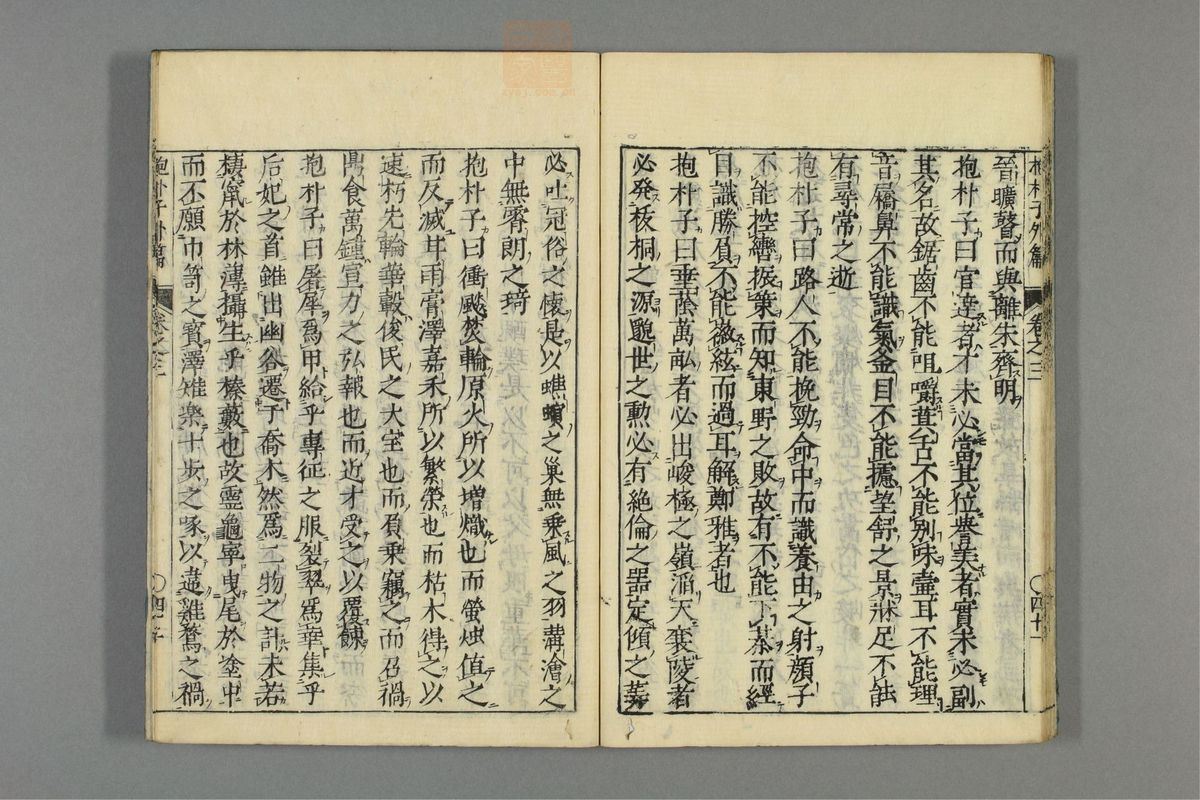 抱朴子外篇 卷之三 〇四十一
晉曠瞽而與離朱齊明
抱朴子曰官達者不未必當其位譽美者實未必副
其名故鋸齒不能咀嚼箕舌不能別味壷耳不能理
音屩鼻不能識氣釜目不能攄望舒之景牀足不能
有尋常之逝
抱朴子曰路人不能挽勁命中而識養由之射顔子
不能控轡振策而知東野之敗故有不能下棊而經
目識勝負不能徽絃而過耳解鄭雅者也
抱朴子曰垂蔭萬畝者必出峻極之嶺滔天襄陵者
必發板桐之源颺世之勲必有絶倫之器定傾之筭
必吐冠俗之懷是以蟭螟之巢無乗風之羽溝澮之
中無霄朗之琦
抱朴子曰衝飇焚輪原火所以増熾也而螢燭値之
而反滅耳雨膏澤嘉禾所以繁榮也而枯木得之以
速朽先輪華轂俊民之大宝也而負乗竊之而召禍
鼎食萬鍾宣力之弘報也而近才受之以覆餗
抱朴子曰屠犀爲甲給乎專征之服裂翠爲華集乎
后妃之首雖出幽谷遷于喬木然爲二物之計未若
棲竄於林薄攝生乎榛藪也故霊龜寧曳尾於塗中
而不願巾笥之寳澤雉樂十歩之啄以違雞鶩之禍
抱朴子外篇 卷之三 〇四十